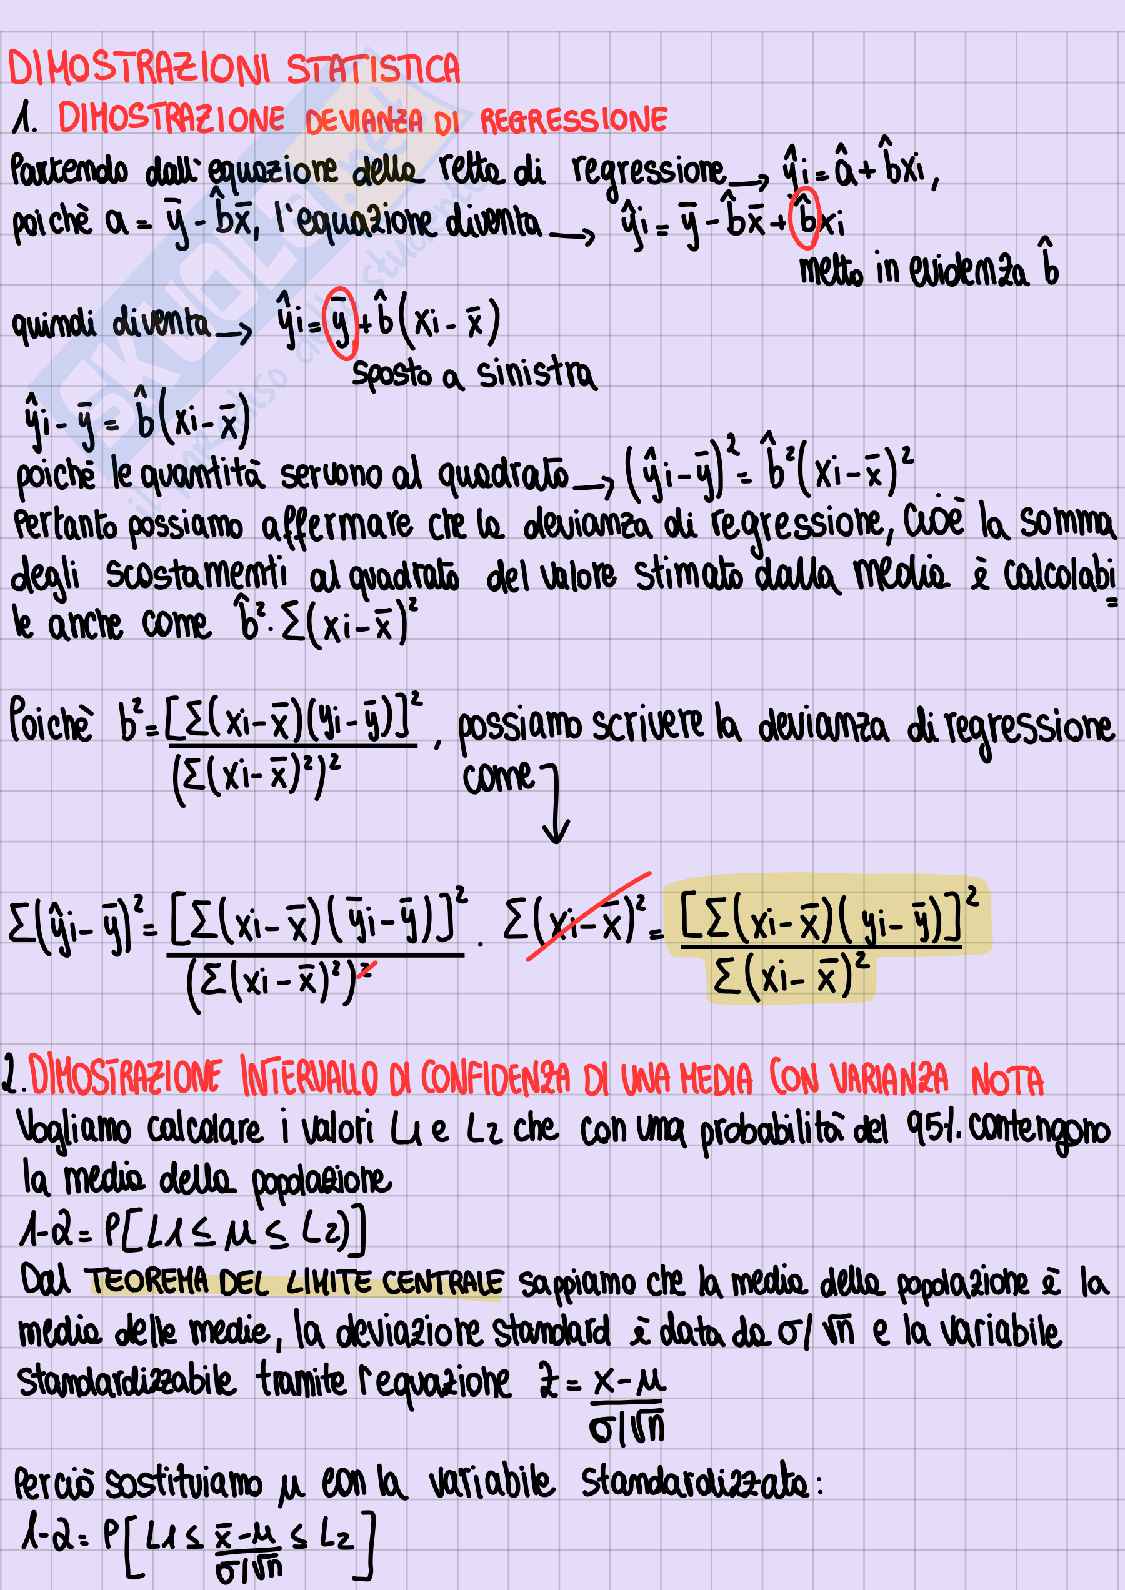 DIMOSTRAZIONI STATISTICA
1. DIMOSTRAZIONE DEVIANZA DI REGRESSIONE
Partendo dall'equazione della retta di regressione → ŷi = â + b̂xi,
poichè a = ȳ - b̂x̄, l'equazione diventa → ŷi = ȳ - b̂x̄ + b̂xi
metto in evidenza b̂
quindi diventa → ŷi = ȳ + b̂(xi - x̄)
sposto a sinistra
ŷi - ȳ = b̂(xi - x̄)
poichè le quantità servono al quadrato → (ŷi - ȳ)² = b̂²(xi - x̄)²
Pertanto possiamo affermare che la devianza di regressione, cioè la somma
degli scostamenti al quadrato del valore stimato dalla media è calcolabi
le anche come b̂² · Σ(xi - x̄)²
Poichè b² = [Σ(xi - x̄)(yi - ȳ)]² / (Σ(xi - x̄)²)² , possiamo scrivere la devianza di regressione
come ↓
Σ(ŷi - ȳ)² = [Σ(xi - x̄)(ȳi - ȳ)]² / (Σ(xi - x̄)²)² · Σ(xi - x̄)² = [Σ(xi - x̄)(yi - ȳ)]² / Σ(xi - x̄)²
2. DIMOSTRAZIONE INTERVALLO DI CONFIDENZA DI UNA MEDIA CON VARIANZA NOTA
Vogliamo calcolare i valori L1 e L2 che con una probabilità del 95% contengono
la media della popolazione
1-α = P[L1 ≤ μ ≤ L2)]
Dal TEOREMA DEL LIMITE CENTRALE sappiamo che la media della popolazione è la
media delle medie, la deviazione standard è data da σ/√n e la variabile
standardizzabile tramite l'equazione z = x - μ / σ/√n
Perciò sostituiamo μ con la variabile standardizzata:
1-α = P[L1 ≤ x̄ - μ / σ/√n ≤ L2]
SKUOLA.net